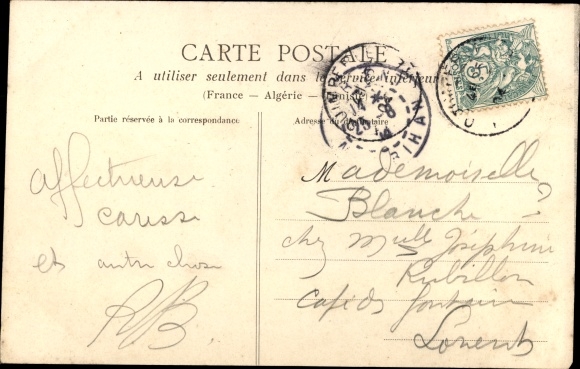 CARTE POSTALE
A utiliser seulement dans le service intérieur
(France — Algérie — Tunisie)
Partie réservée à la correspondance
Adresse du destinataire
affectueuse
caresse
et autre chose
RB
Mademoiselle
Blanche
chez Mlle Joséphine
Rubillon
Café de fontaine
Lorient
QUIMPERLE